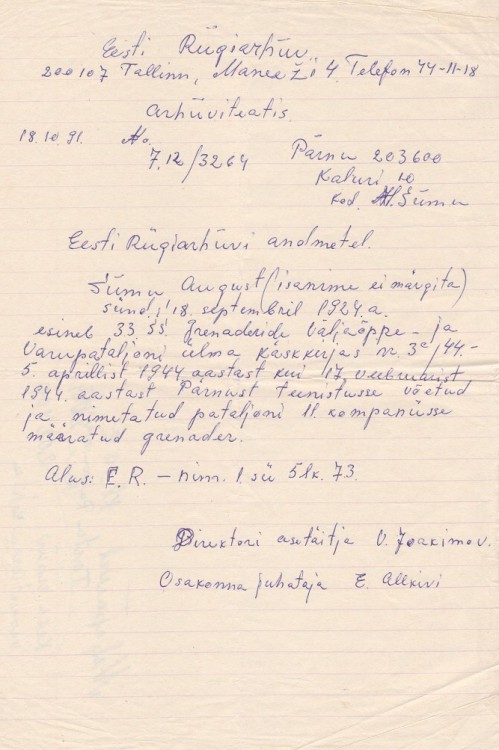 Eesti Riigiarhiiv
200107 Tallinn, Maneeži 4. Telefon 44-11-18
Arhiiviteatis.
18.10.91. No.
7.12/3264
Pärnu 203600
Kaluri 10
kod. Siimu
Eesti Riigiarhiivi andmetel.
Siimu August (isanime ei märgita)
sünd. 18. septembril 1924.a.
esineb 33. SS. Grenaderide Väljaõppe- ja
Varupataljoni ülma käskkirjas nr. 3c/44.-
5. aprillist 1944 aastast kui 17. veebruarist
1944. aastast Pärnust teenistusse võetud
ja nimetatud pataljoni 11. kompaniisse
määratud grenader.
Alus: E.R. – nim. 1. sü 5 lk. 73.
Direktori asetäitja V. Joakimov.
Osakonna juhataja E. Allkivi